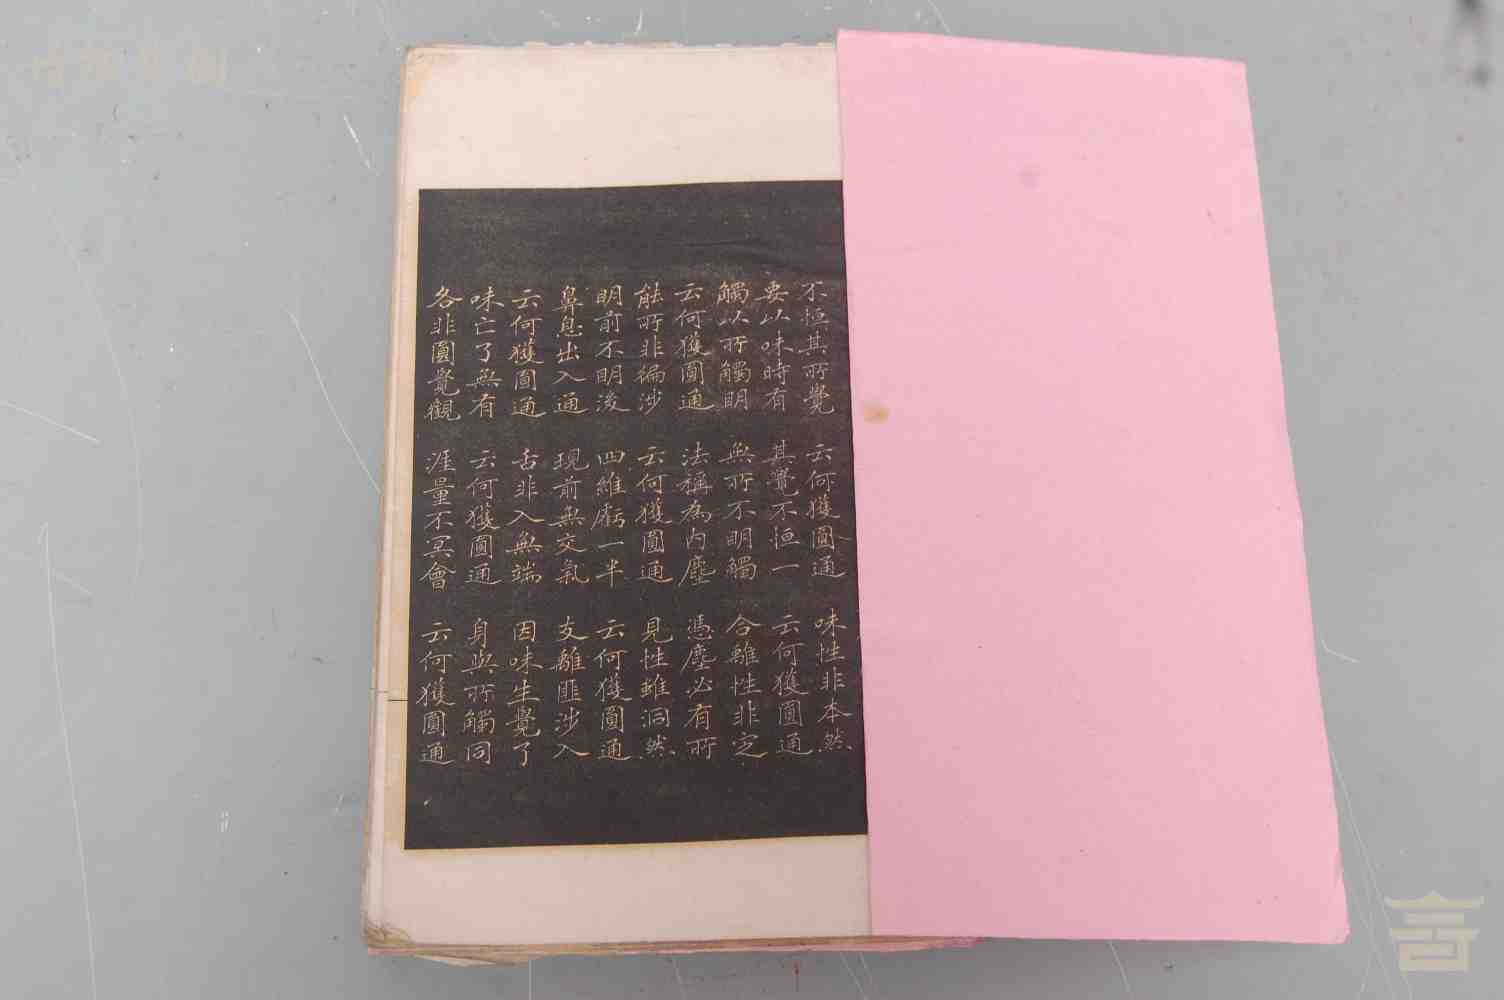 不恒其所覺 云何獲圓通 味性非本然
要以味時有 其覺不恒一 云何獲圓通
觸以所觸明 無所不明觸 合離性非定
云何獲圓通 法稱為內塵 憑塵必有所
能所非徧涉 云何獲圓通 見性雖洞然
明前不明後 四維虧一半 云何獲圓通
鼻息出入通 現前無交氣 支離匪涉入
云何獲圓通 舌非入無端 因味生覺了
味亡了無有 云何獲圓通 身與所觸同
各非圓覺觀 涯量不冥會 云何獲圓通